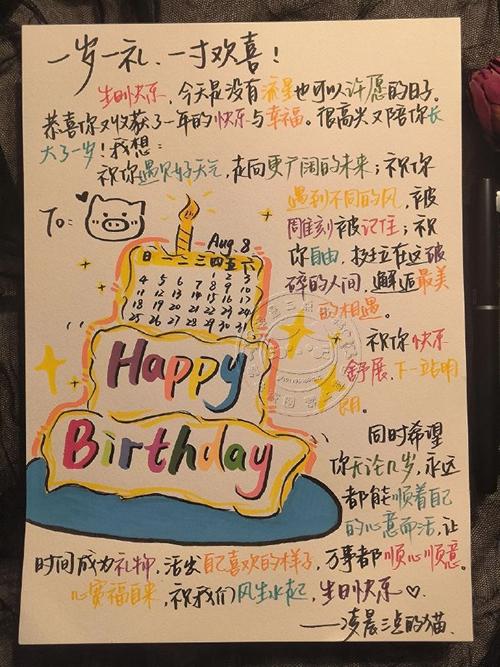 一岁一礼、一寸欢喜！
生日快乐，今天是没有流星也可以许愿的日子。
恭喜你又收获了一年的快乐与幸福。很高兴又陪你长
大了一岁！我想：
祝你遇见好天气，走向更广阔的未来；祝你
遇到不同的风，被
雕刻被记住；祝
你自由，挺立在这破
碎的人间，邂逅最美
的相遇。
祝你快乐
舒展，下一站明
朗。
To:
Aug. 8
日 一 二 三 四 五 六
1 2 3
4 5 6 7 8 9 10
11 12 13 14 15 16 17
18 19 20 21 22 23 24
25 26 27 28 29 30 31
Happy
Birthday
同时希望
你无论几岁，永远
都能顺着自己
的心意而活，让
时间成为礼物，活出自己喜欢的样子，万事都顺心顺意。
心宽福自来，祝我们风生水起，生日快乐♡.
——凌晨三点的猫.